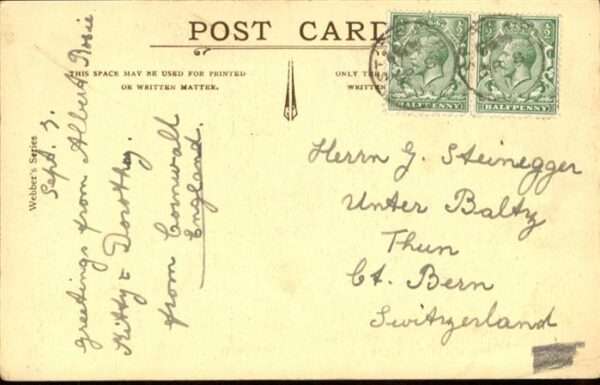 POST CARD
THIS SPACE MAY BE USED FOR PRINTED
OR WRITTEN MATTER.
ONLY THE
WRITTEN
HALFPENNY
HALFPENNY
Webber's Series
Sept. 3.
Greetings from Albert Rosie
Kitty & Dorothy.
from Cornwall
England.
Herrn G. Steinegger
Unter Bältz
Thun
Ct. Bern
Switzerland